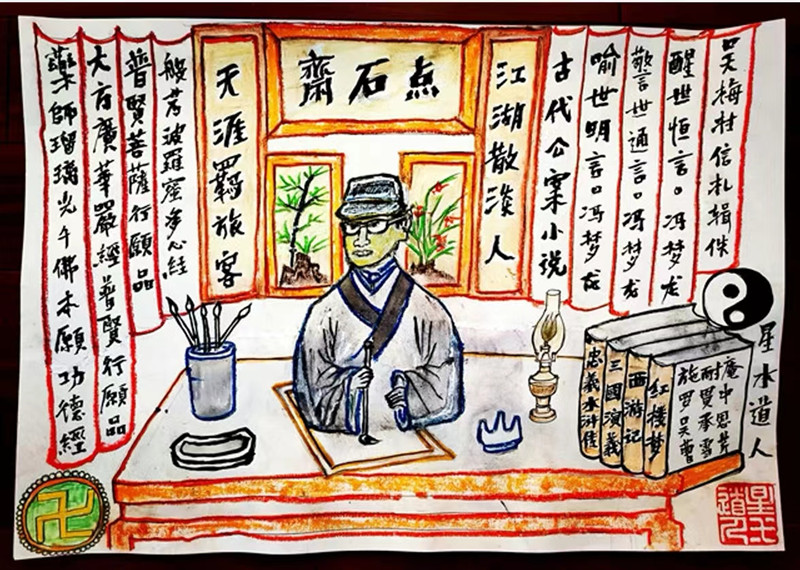 吴梅村信札辑佚
醒世恒言。冯梦龙
警世通言。冯梦龙
喻世明言。冯梦龙
古代公案小说
江湖散淡人
点石齋
天涯羈旅客
般若波羅蜜多心経
普賢菩薩行願品
大方廣華嚴經普賢行願品
藥師瑠璃光千佛本願功德經
星水道人
庵中恩芹
耐贯承雪
施罗吴曹
红楼梦
西游记
三國演義
忠義水浒傳